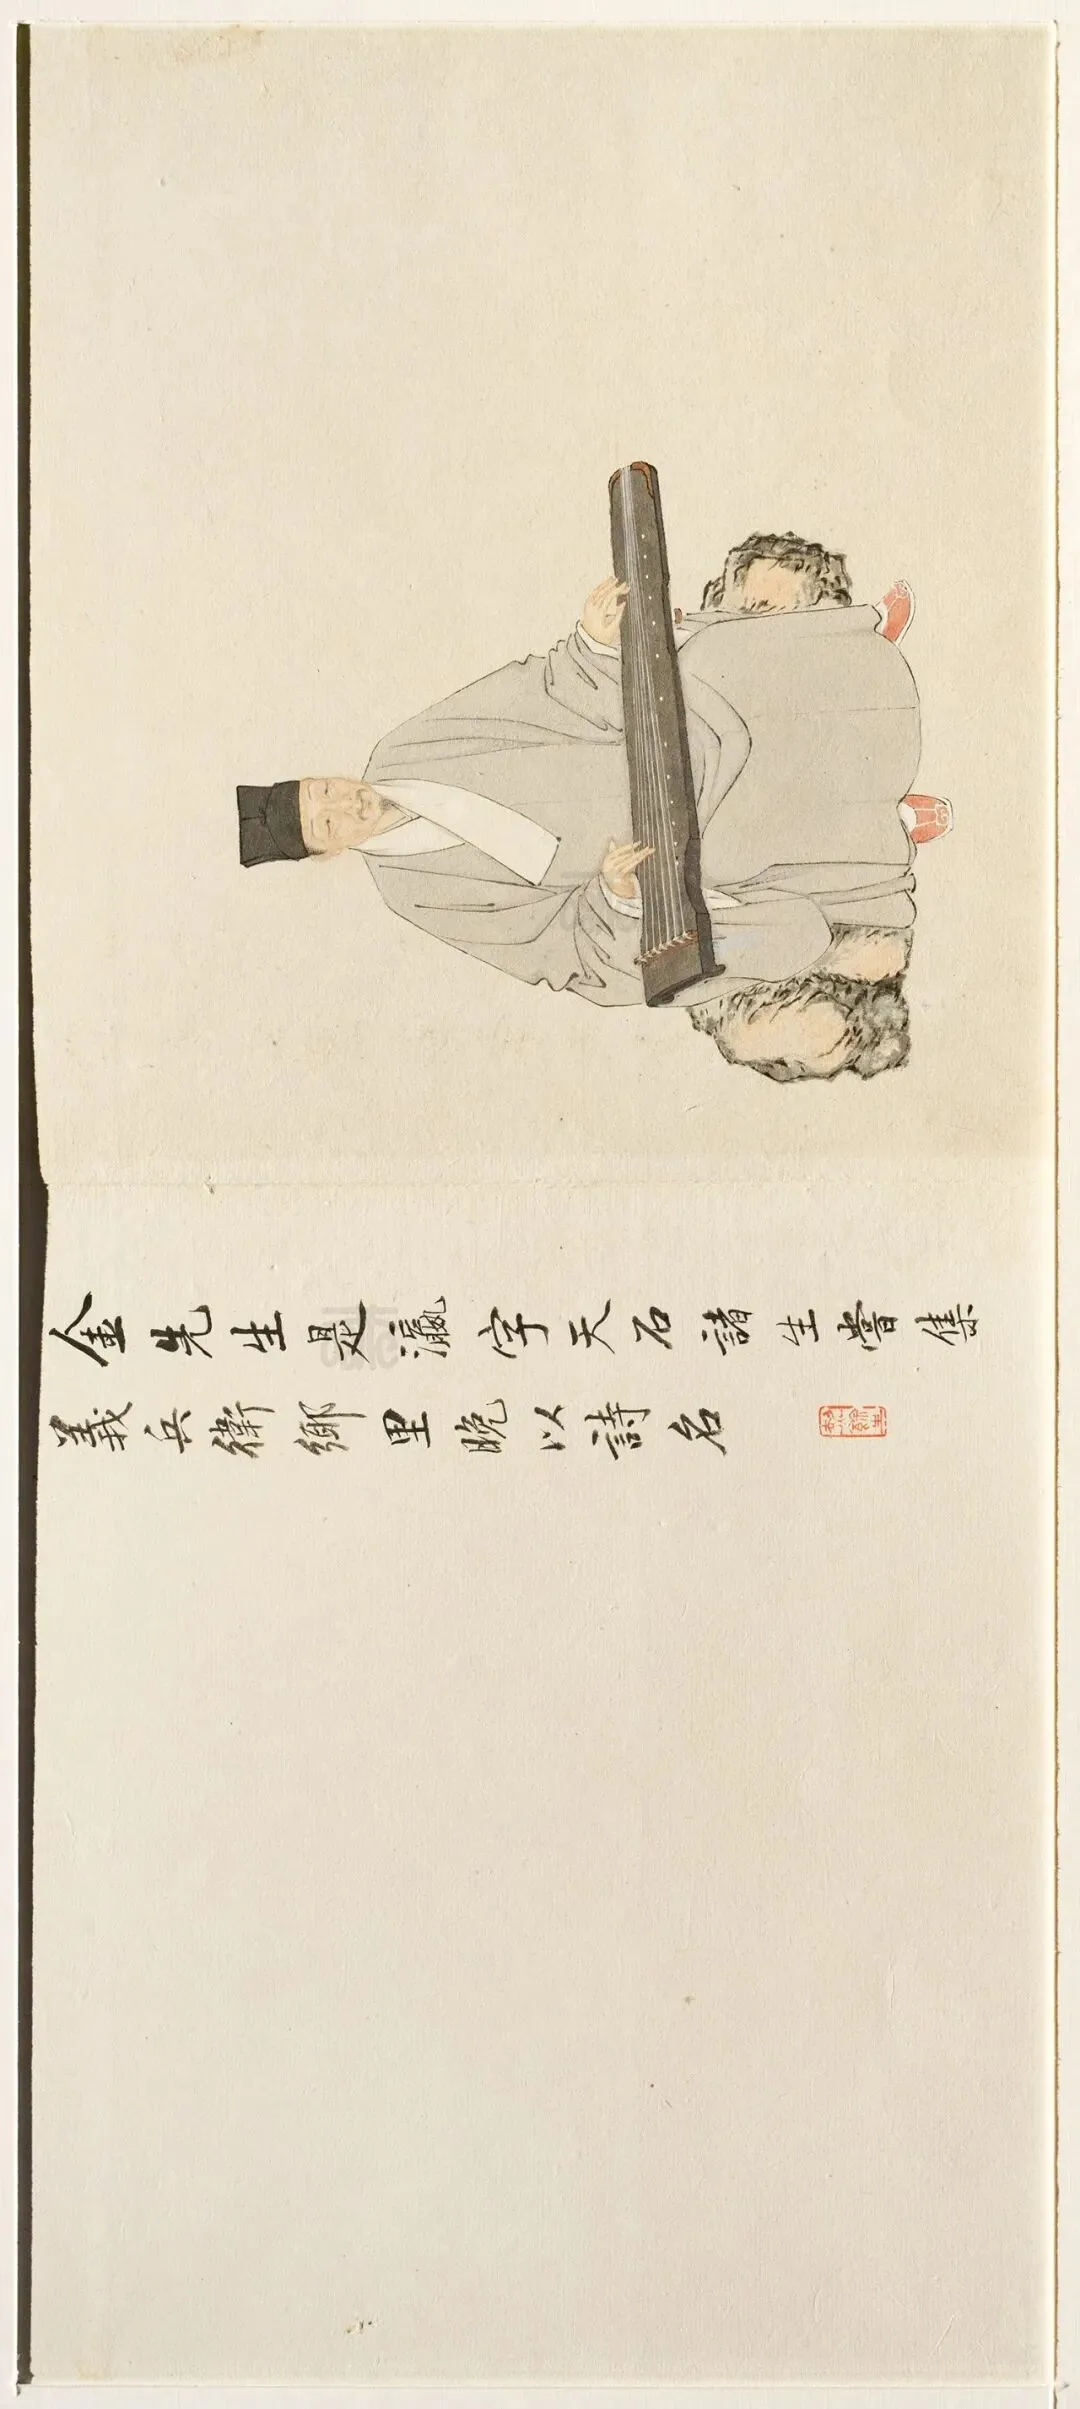 金先生是瀛字天石諸生嘗集
義兵衛鄉里晚以詩名